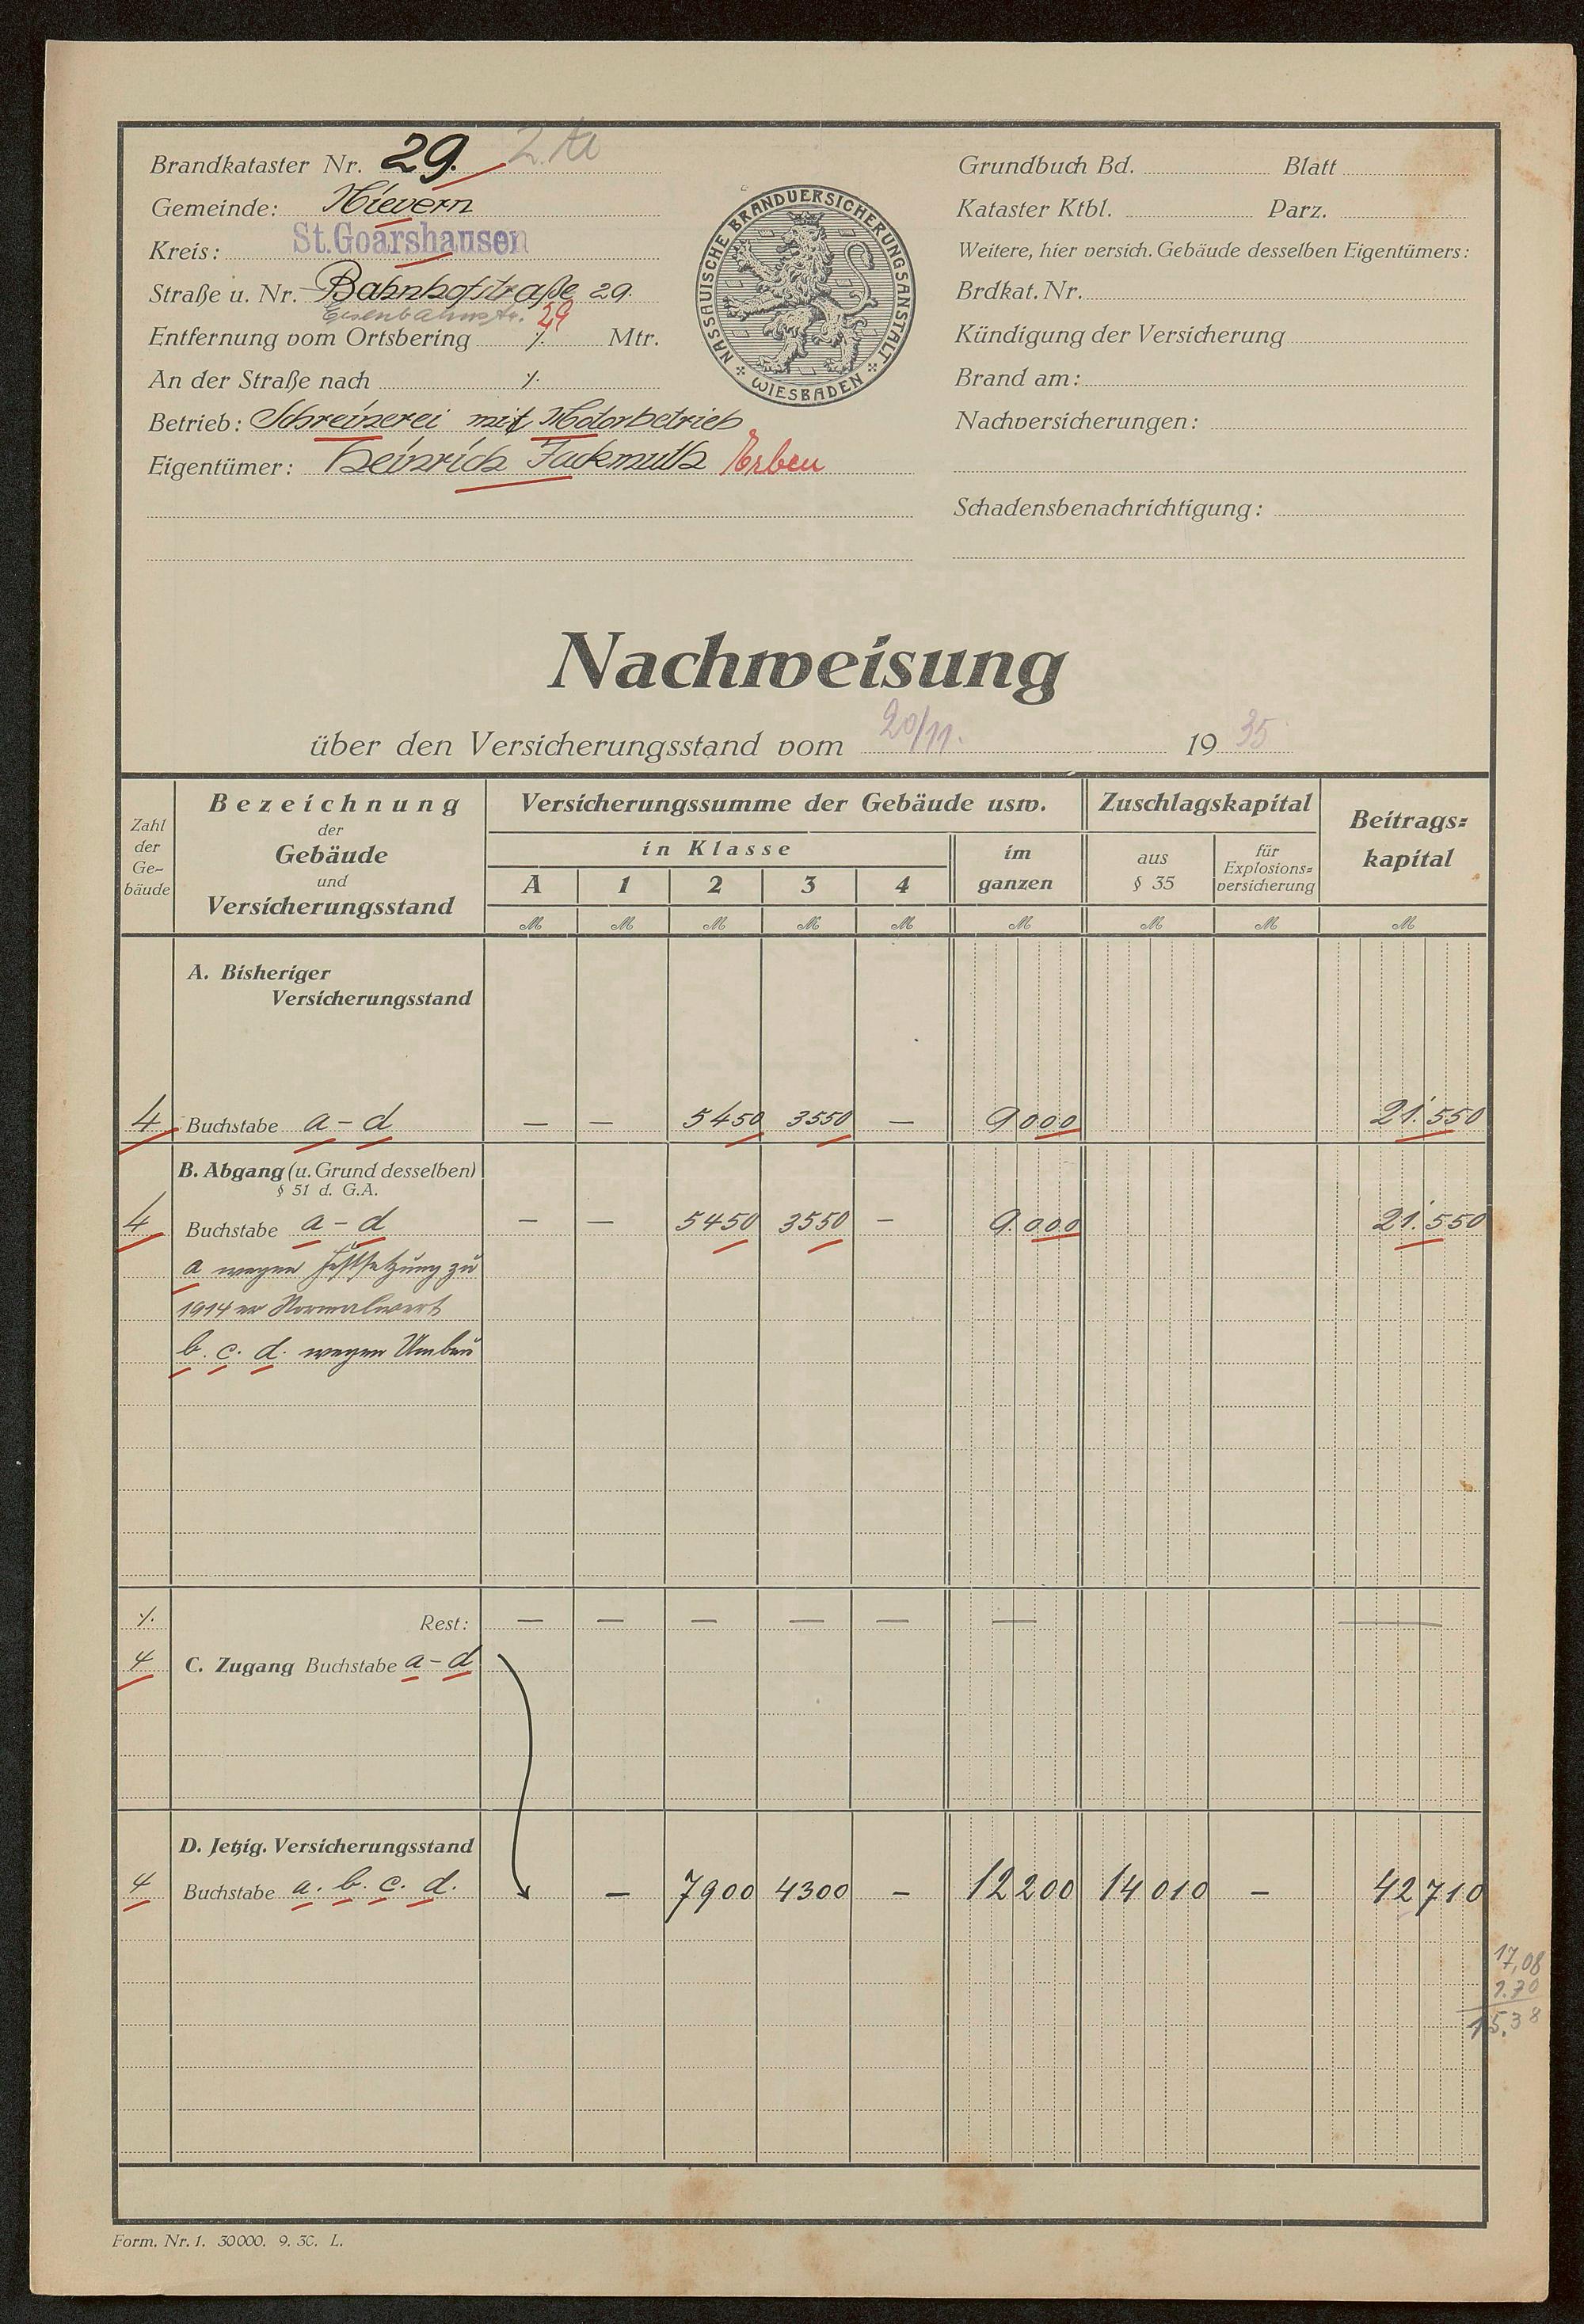 Brandkataster Nr. 29.
Gemeinde: Nievern
Kreis: St.Goarshausen
Straße u. Nr. Bahnhofstraße 29.
Eisenbahnstr. 29
Entfernung vom Ortsbering ./. Mtr.
An der Straße nach ./.
Betrieb: Schreinerei mit Motorbetrieb
Eigentümer: Heinrich Fackmuth Erben
NASSAUISCHE BRANDVERSICHERUNGSANSTALT
WIESBADEN
Grundbuch Bd. Blatt
Kataster Ktbl. Parz.
Weitere, hier versich. Gebäude desselben Eigentümers:
Brdkat. Nr.
Kündigung der Versicherung
Brand am:
Nachversicherungen:
Schadensbenachrichtigung:
Nachweisung
über den Versicherungsstand vom 20/11. 1935
Zahl der Ge-bäude
Bezeichnung
der
Gebäude
und
Versicherungsstand
Versicherungssumme der Gebäude usw.
in Klasse
A 1 2 3 4
im ganzen
Zuschlagskapital
aus § 35
für Explosions-versicherung
Beitrags-kapital
M M M M M M M M M
A. Bisheriger
Versicherungsstand
4 Buchstabe a - d — — 5450 3550 — 9000 21.550
B. Abgang (u. Grund desselben)
§ 51 d. G.A.
4 Buchstabe a - d — — 5450 3550 — 9.000 21.550
a wegen Festsetzung zu
1914er Normalwert
b. c. d. wegen Umbau
./. Rest: — — — — — — —
4 C. Zugang Buchstabe a - d
D. Jetzig. Versicherungsstand
4 Buchstabe a. b. c. d. — 7900 4300 — 12200 14010 — 42710
17,08
1.70
15.38
Form. Nr. 1. 30000. 9. 30. L.